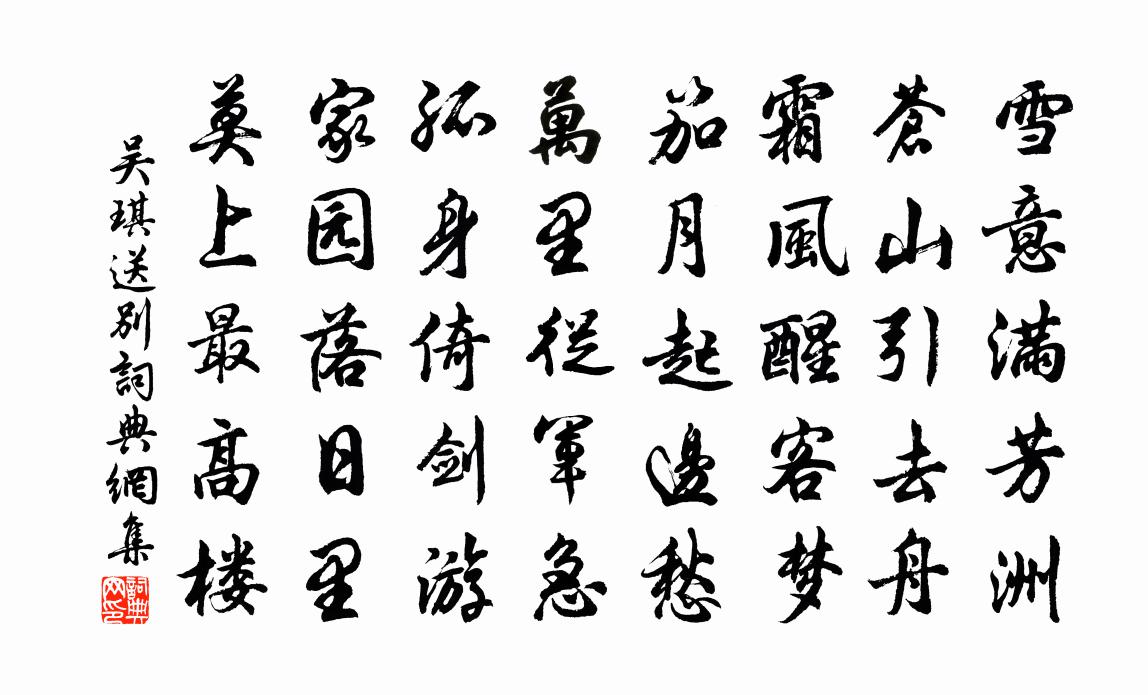 雪意满芳洲
蒼山引去舟
霜風醒客梦
笳月起邊愁
萬里從軍急
孤身倚劍游
家园落日里
莫上最高楼
吴琪送别詞典網集
詞典網印